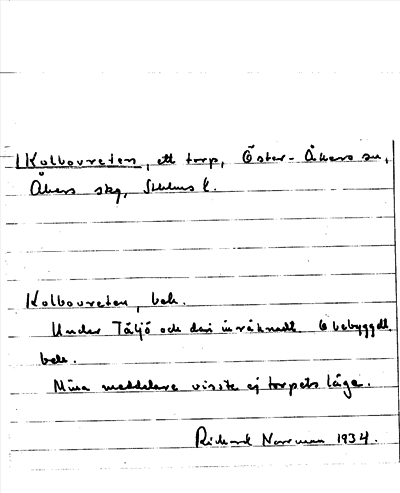 Kolbovreten, ett torp, Öster-Åkers sn,
Åkers skg, Sthlms l.
Kolbovreten, beb.
Under Täljö och däri inräknadt. Obebyggdt.
beb.
Mina meddelare visste ej torpets läge.
Richard Norrman 1934.